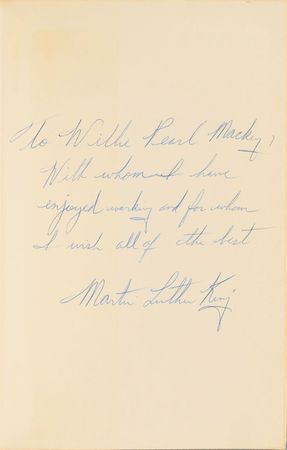 To Willie Pearl Mackey,
With whom I have
enjoyed working and for whom
I wish all of the best
Martin Luther King